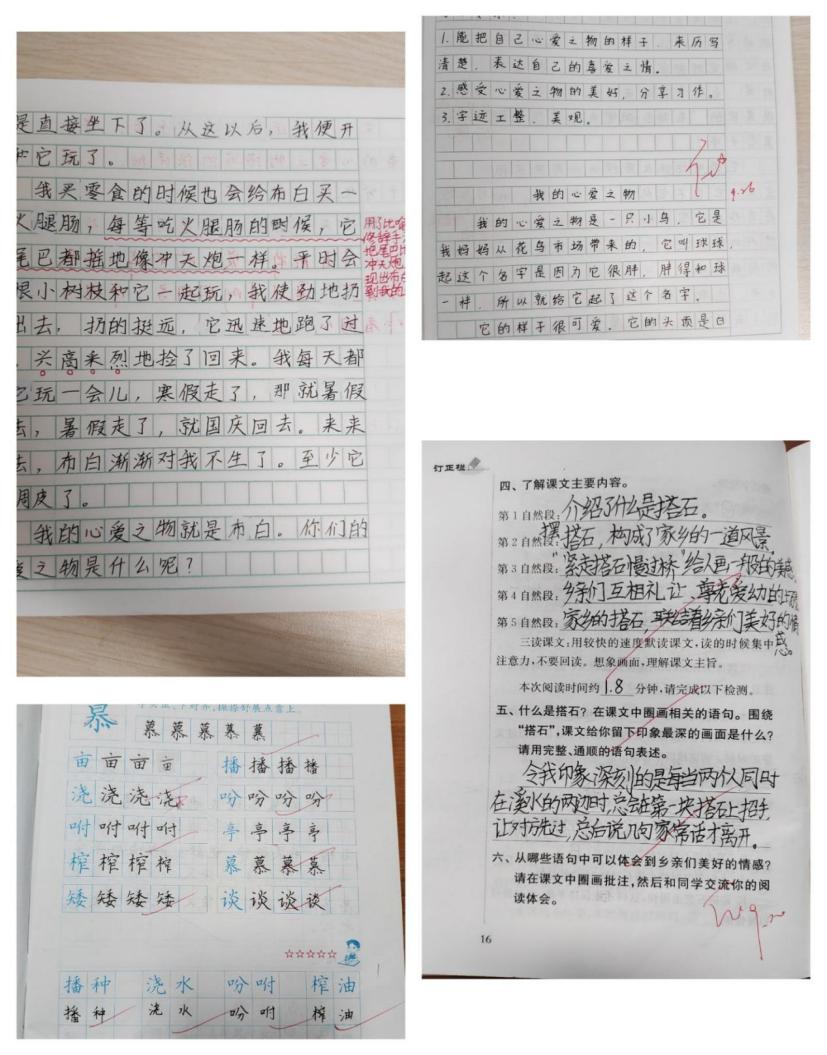 是直接坐下了。从这以后，我便开
和它玩了。
我买零食的时候也会给布白买一
火腿肠，每等吃火腿肠的时候，它
尾巴都摇地像冲天炮一样。平时会
根小树枝和它一起玩，我使劲地扔
出去，扔的挺远，它迅速地跑了过
，兴高采烈地捡了回来。我每天都
它玩一会儿，寒假走了，那就暑假
去，暑假走了，就国庆回去。来来
去，布白渐渐对我不生了。至少它
调皮了。
我的心爱之物就是布白。你们的
爱之物是什么呢？
用了比喻
修辞手
把尾巴比
冲天炮
现出布白
到我的
1.能把自己心爱之物的样子、来历写
清楚，表达自己的喜爱之情。
2.感受心爱之物的美好，分享习作。
3.字迹工整、美观。
9.26
我的心爱之物
我的心爱之物是一只小鸟，它是
我妈妈从花鸟市场带来的，它叫球球，
起这个名字是因为它很胖，胖得和球
一样，所以就给它起了这个名字。
它的样子很可爱，它的头顶是白
订正栏
四、了解课文主要内容。
第1自然段：介绍了什么是搭石。
第2自然段：摆搭石，构成了家乡的一道风景。
第3自然段：“紧走搭石慢过桥”给人画一般的美感
第4自然段：乡亲们互相礼让、尊老爱幼的
第5自然段：家乡的搭石，联结着乡亲们美好的情感。
三读课文：用较快的速度默读课文，读的时候集中
注意力，不要回读。想象画面，理解课文主旨。
本次阅读时间约1.8分钟，请完成以下检测。
五、什么是搭石？在课文中圈画相关的语句。围绕
“搭石”，课文给你留下印象最深的画面是什么？
请用完整、通顺的语句表述。
令我印象深刻的是每当两个人同时
在溪水的两边时，总会在第一块搭石上招手，
让对方先过，总后说几句家常话才离开。
六、从哪些语句中可以体会到乡亲们美好的情感？
请在课文中圈画批注，然后和同学交流你的阅
读体会。
16
慕
慕 慕 慕 慕 慕
亩 亩 亩 亩 播 播 播 播
浇 浇 浇 浇 吩 吩 吩 吩
咐 咐 咐 咐 亭 亭 亭 亭
榨 榨 榨 榨 慕 慕 慕 慕
矮 矮 矮 矮 谈 谈 谈 谈
播种 浇水 吩咐 榨油
播种 浇水 吩咐 榨油